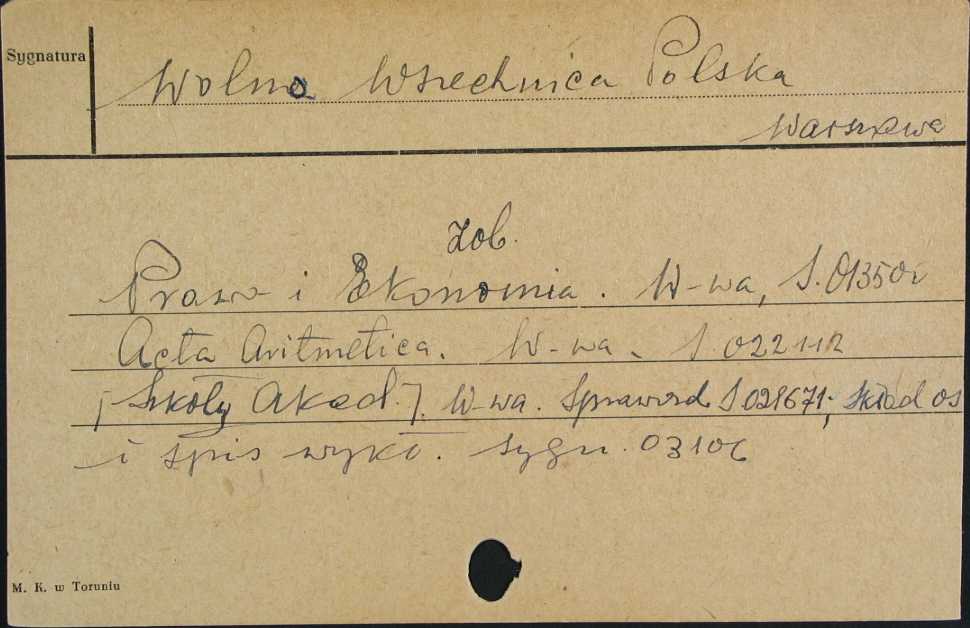 Sygnatura
Wolna Wszechnica Polska
Warszawa
zob.
Prawo i Ekonomia. W-wa, S.
Acta Aritmetica. W-wa. S. 022112
[Szkoły Akad.]. W-wa. Sprawozd. S 021671; skład os
i spis wykł. sygn. 03106
M. K. w Toruniu